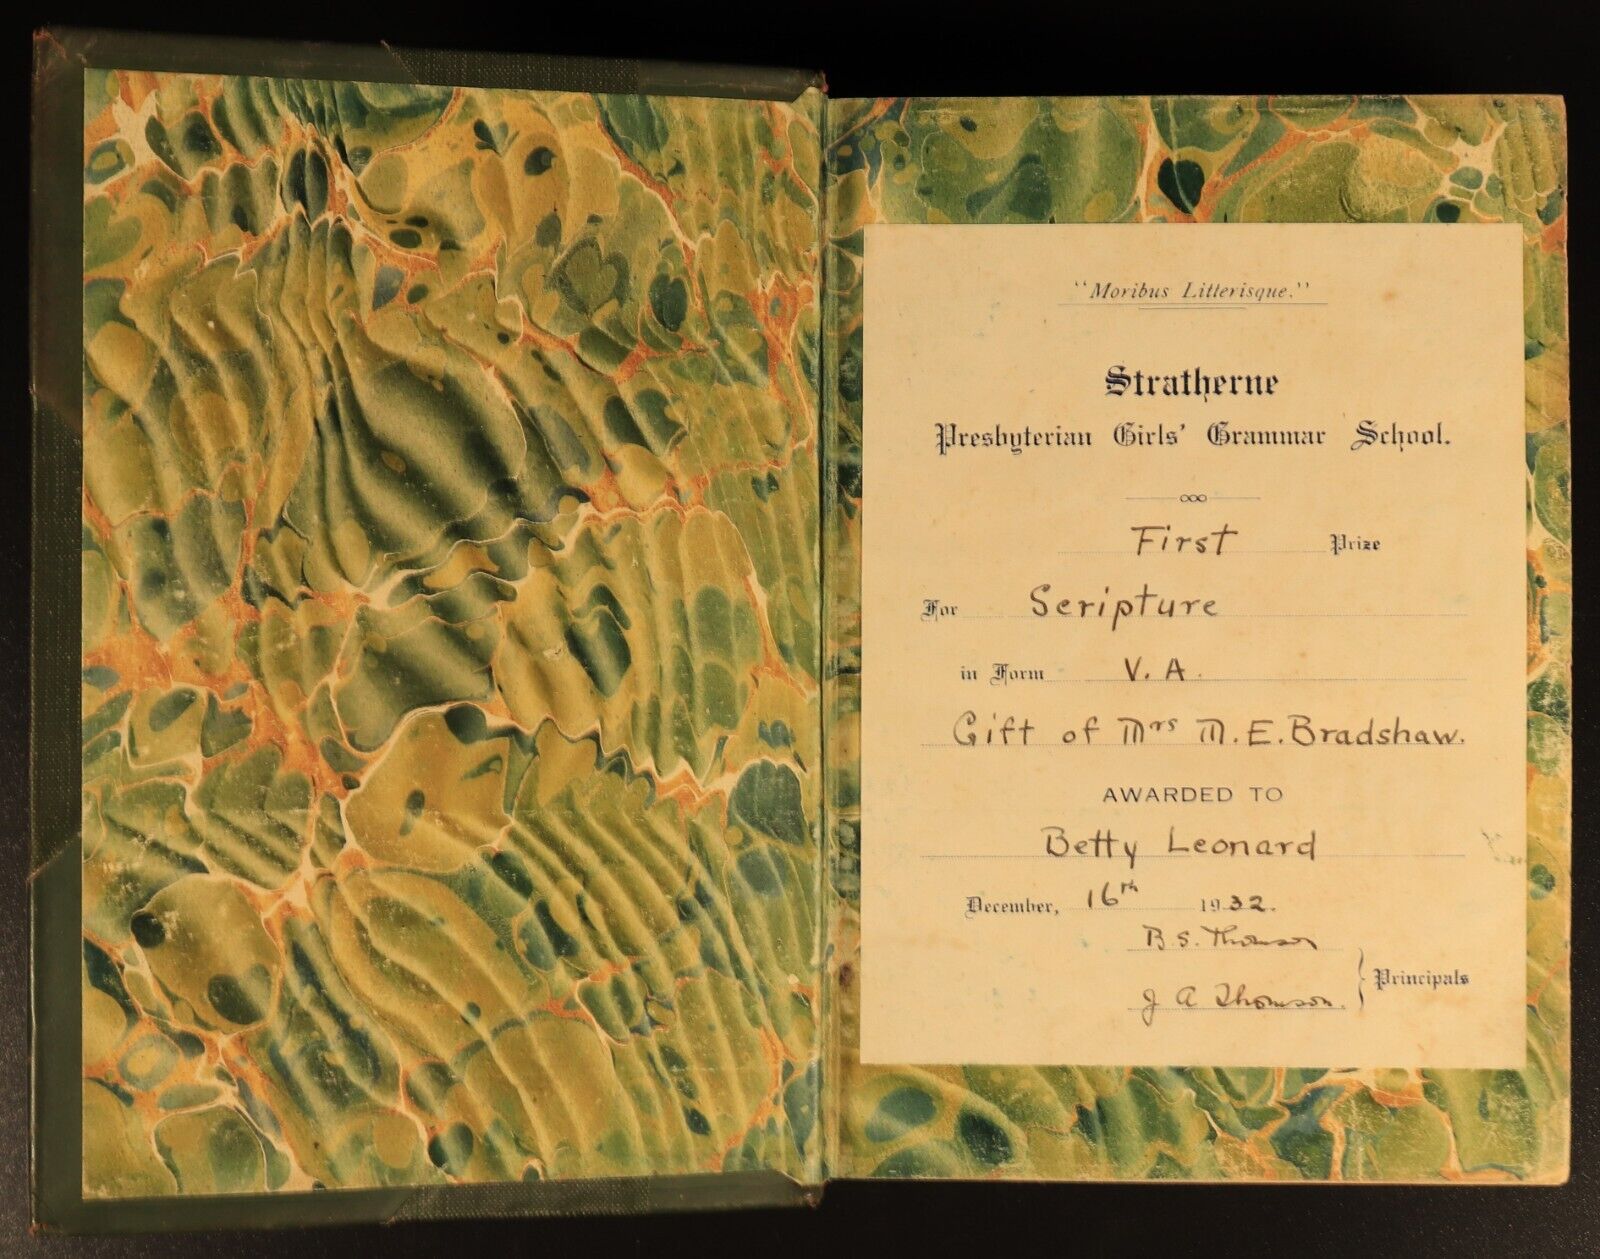 "Moribus Litterisque."
Stratherne
Presbyterian Girls' Grammar School.
First Prize
For Scripture
in Form V. A.
Gift of Mrs M. E. Bradshaw.
AWARDED TO
Betty Leonard
December, 16th 1932.
B. S. Thomson
J A Thomson. } Principals